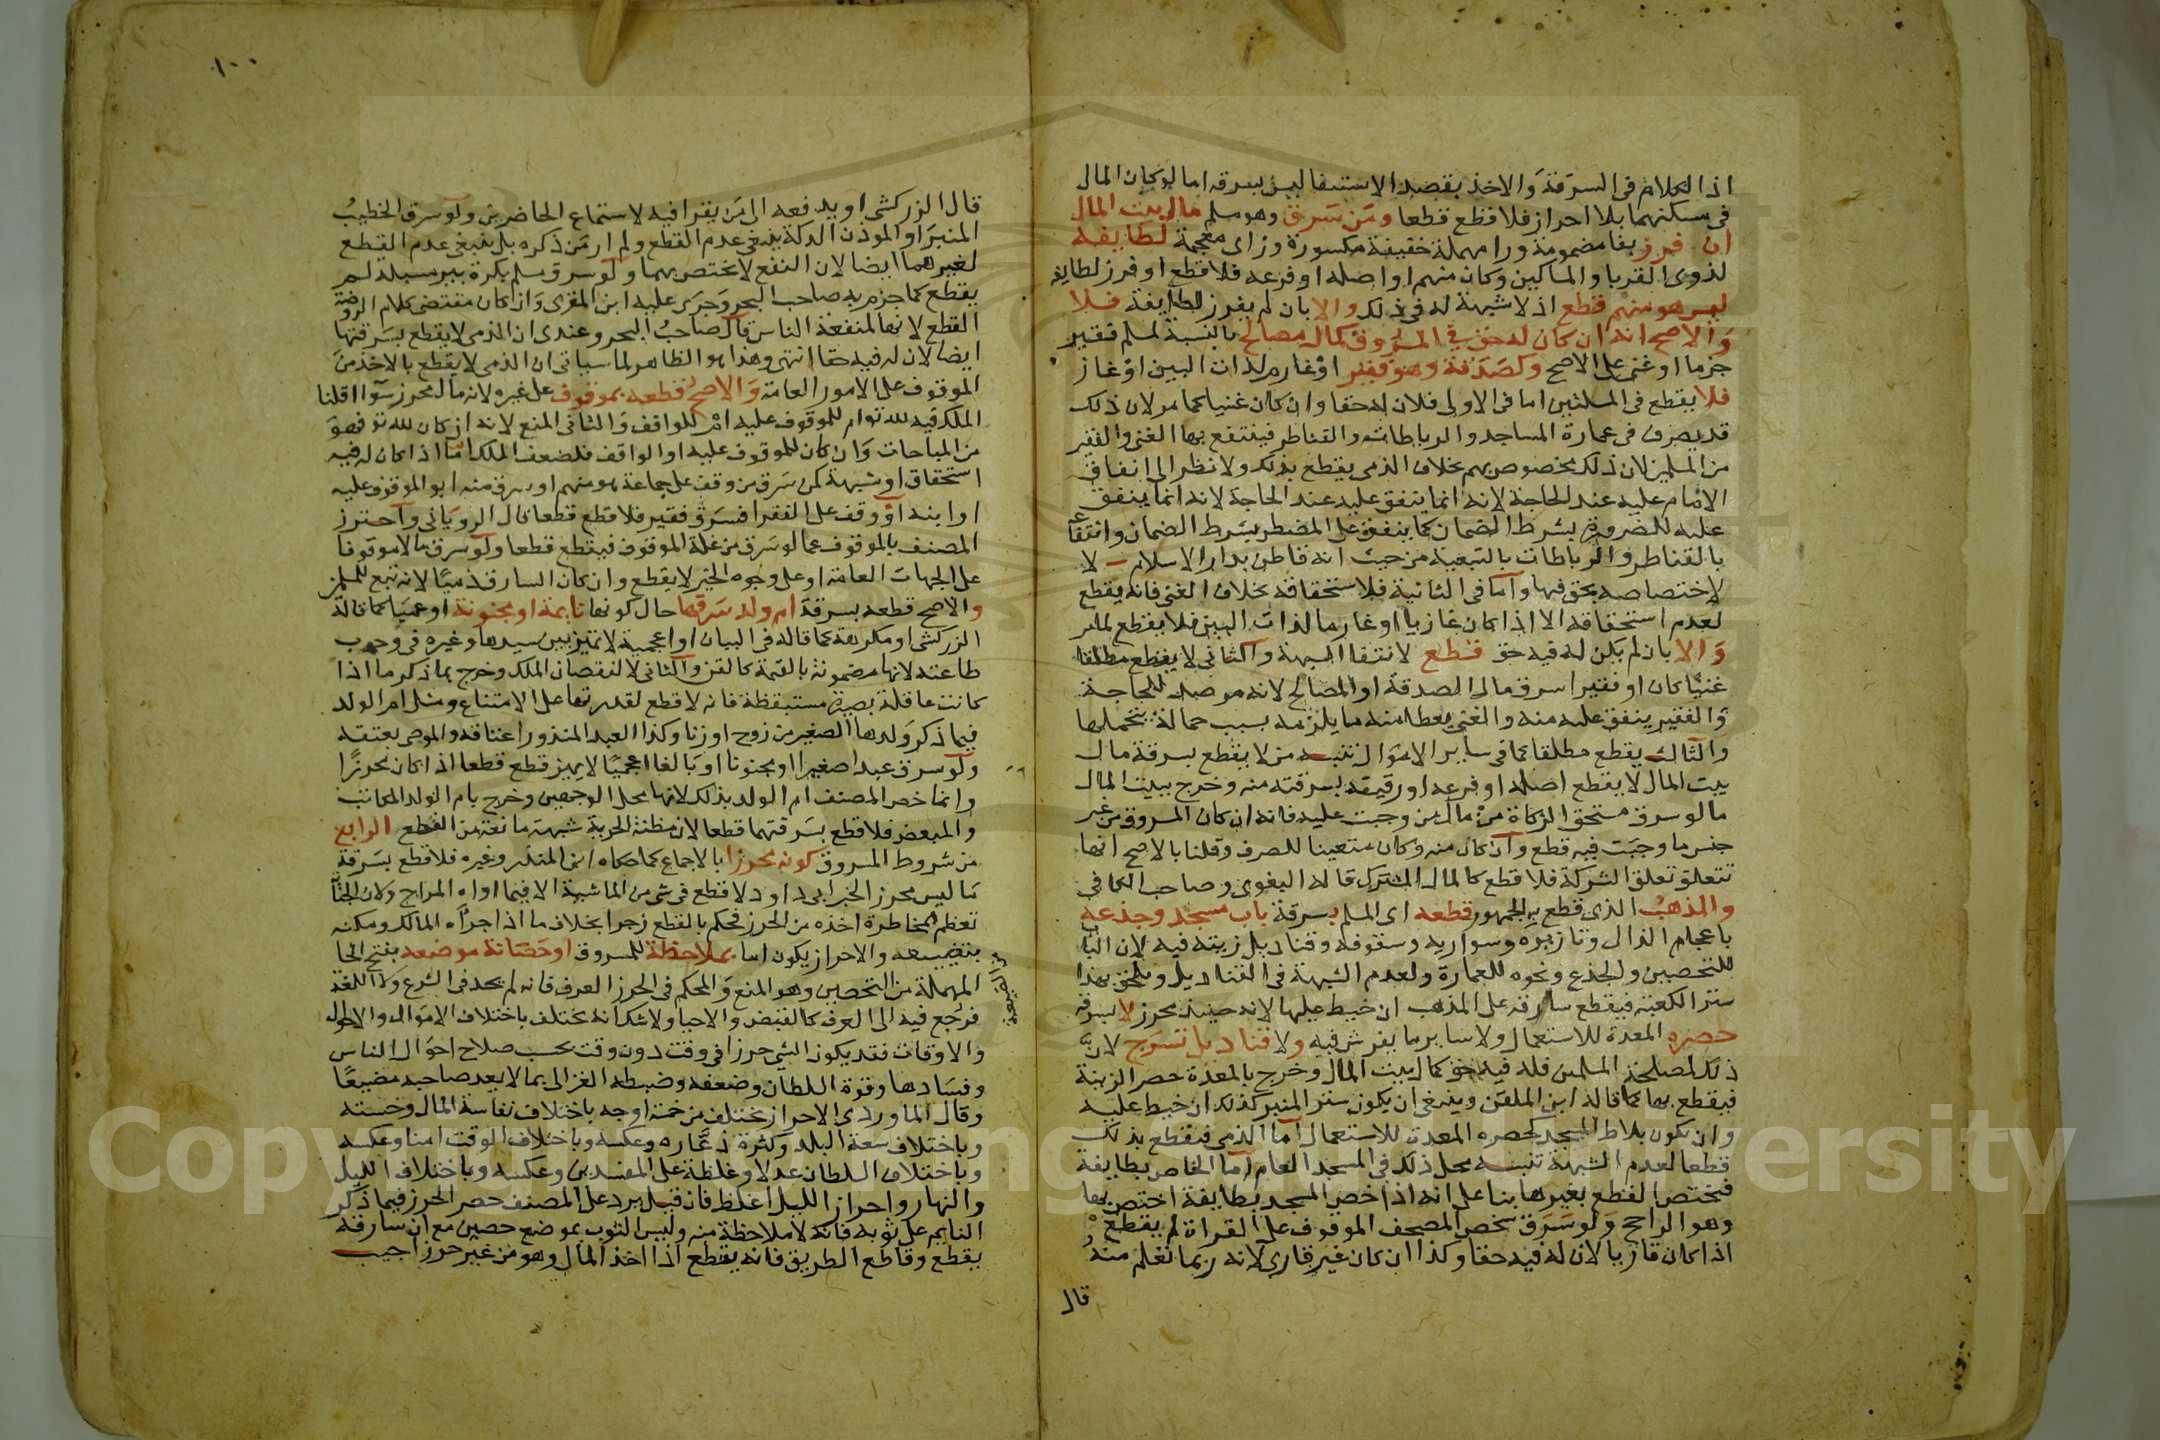 اذ الكلام في السرقة والاخذ بقصد الاستيفا ليس بسرقه اما لو كان المال
في مسكنهما بلا احراز فلا قطع قطعا ومن سرق وهو مسلم مال بيت المال
ان فرز بفا مضمومة ورا مهملة خفيفة مكسورة وزاي معجمة لطايفه
لذوي القربا والمساكين وكان منهم او اصله او فرعه فلا قطع او فرز لطايفه
ليس هو منهم قطع اذ لا شبهة له في ذلك والا بان لم يفرز لطايفة فلا
والاصح انه ان كان له حق في المسروق كمال مصالح بالنسبة لمسلم فقير
جزما او غني على الاصح وكصدقة وهو فقير او غارم لذات البين او غاز
فلا يقطع في المسلتين اما في الاولى فلان له حقا وان كان غنيا كما مر لان ذلك
قد يصرف في عمارة المساجد والرباطات والقناطر فينتفع بها الغني والفقير
من المسلمين لان ذلك مخصوص بهم بخلاف الذمي يقطع بذلك ولا نظر الى انفاق
الامام عليه عند الحاجة لانه انما ينفق عليه عند الحاجة لانه انما ينفق
عليه للضرورة بشرط الضمان كما ينفق على المضطر بشرط الضمان وانتفاعه
بالقناطر والرباطات بالتبعية من حيث انه قاطن بدار الاسلام لا
لاختصاصه بحق فيها واما في الثانية فلاستحقاقه بخلاف الغني فانه يقطع
لعدم استحقاقه الا اذا كان غازيا او غارما لذات البين فلا يقطع لما مر
والا بان لم يكن له فيه حق قطع لانتفا الشبهة والثاني لا يقطع مطلقا
غنيا كان او فقيرا سرق مال الصدقة او المصالح لانه مرصد للحاجة
والفقير ينفق عليه منه والغني يعطا منه ما يلزمه بسبب حمالة يتحملها
والثالث يقطع مطلقا كما في ساير الاموال تنبيه من لا يقطع بسرقة مال
بيت المال لا يقطع اصله او فرعه او رقيقه بسرقته منه وخرج ببيت المال
ما لو سرق مستحق الزكاة من مال من وجبت عليه فانه ان كان المسروق من غير
جنس ما وجبت فيه قطع وان كان منه وكان متعينا للصرف وقلنا بالاصح انها
تتعلق تعلق الشركة فلا قطع كالمال المشترك قاله البغوي وصاحب الكافي
والمذهب الذي قطع به الجمهور قطعه اي المسلم بسرقة باب مسجد وجذعه
باعجام الذال وتازيره وسواريه وسقوفه وقناديل زينة فيه لان الباب
للتحصين والجذع ونحوه للعمارة ولعدم الشبهة في القناديل ويلحق بهذا
ستر الكعبة فيقطع سارقه على المذهب ان خيط عليها لانه حينيذ محرز لا بسرقة
حصره المعدة للاستعمال ولا ساير ما يفرش فيه ولا قناديل تسرج لان
ذلك لمصلحة المسلمين فله فيه حق كمال بيت المال وخرج بالمعدة حصر الزينة
فيقطع بها كما قاله ابن الملقن وينبغي ان يكون ستر المنبر كذلك ان خيط عليه
وان يكون بلاط المسجد كحصره المعدة للاستعمال اما الذمي فيقطع بذلك
قطعا لعدم الشبهة تنبيه محل ذلك في المسجد العام اما الخاص بطايفة
فيختص القطع بغيرها بنا على انه اذا خص المسجد بطايفة اختص بها
وهو الراجح ولو سرق شخص المصحف الموقوف على القراة لم يقطع
اذا كان قاريا لان له فيه حقا وكذا ان كان غير قاري لانه ربما تعلم منه
قال
١٠٠
قال الزركشي او يدفعه الى من يقرا فيه لاستماع الحاضرين ولو سرق الخطيب
المنبر او الموذن الدكة ينبغي عدم القطع ولم ار من ذكره بل ينبغي عدم القطع
لغيرهما ايضا لان النفع لا يختص بهما ولو سرق مسلم بكرة بير مسبلة لم
يقطع كما جزم به صاحب البحر وجرى عليه ابن المقري وان كان مقتضى كلام الروضة
القطع لانها لمنفعة الناس قال صاحب البحر وعندي ان الذمي لا يقطع بسرقتها
ايضا لان له فيه حقا انتهى وهذا هو الظاهر لما سياتي ان الذمي لا يقطع بالاخذ من
الموقوف على الامور العامة والاصح قطعه بموقوف على غيره لانه مال محرز سوا اقلنا
الملك فيه لله تع ام للموقوف عليه ام للواقف والثاني المنع لانه ان كان لله تع فهو
من المباحات وان كان للموقوف عليه او الواقف فلضعف الملك اما اذا كان له فيه
استحقاق او شبهة كمن سرق من وقف على جماعة هو منهم او سرق منه ابو الموقوف عليه
او ابنه او وقف على الفقرا فسرق فقير فلا قطع قطعا قال الروياني واحترز
المصنف بالموقوف عما لو سرق من غلة الموقوف فيقطع قطعا ولو سرق مالا موقوفا
على الجهات العامة او على وجوه الخير لا يقطع وان كان السارق ذميا لانه تبع للمسلمين
والاصح قطعه بسرقة ام ولد سرقها حال كونها نايمة او مجنونة او عميا كما قاله
الزركشي او مكرهة كما قاله في البيان او اعجمية لا تميز بين سيدها وغيره في وجوب
طاعته لانها مضمونة بالقيمة كالقن والثاني لا لنقصان الملك وخرج بما ذكر ما اذا
كانت عاقلة بصيرة مستيقظة فانه لا قطع لقدرتها على الامتناع ومثل ام الولد
فيما ذكر ولدها الصغير من زوج او زنا وكذا العبد المنذور اعتاقه والموصى بعتقه
ولو سرق عبدا صغيرا او مجنونا او بالغا اعجميا لا يميز قطع قطعا اذا كان محرزا
وانما خص المصنف ام الولد بذلك لانها محل الوجهين وخرج بام الولد المكاتب
والمبعض فلا قطع بسرقتهما قطعا لان مظنة الحرية شبهة مانعة من القطع الرابع
من شروط المسروق كونه محرزا بالاجماع كما حكاه ابن المنذر وغيره فلا قطع بسرقة
ما ليس محرز الخبر ابي داود لا قطع في شي من الماشية الا فيما اواه المراح ولان الجناية
تعظم بمخاطرة اخذه من الحرز فحكم بالقطع زجرا بخلاف ما اذا جراه المالك ومكنه
بتضييعه والاحراز يكون اما بملاحظة للمسروق او حصانة موضعه بفتح الحا
المهملة من التحصين وهو المنع والمحكم في الحرز العرف فانه لم يحد في الشرع ولا اللغة
فرجع فيه الى العرف كالقبض والاحيا ولا شك انه يختلف باختلاف الاموال والاحوال
والاوقات فقد يكون الشي حرزا في وقت دون وقت بحسب صلاح احوال الناس
وفسادها وقوة السلطان وضعفه وضبطه الغزالي بما لا يعد صاحبه مضيعا
وقال الماوردي الاحراز يختلف من خمسة اوجه باختلاف نفاسة المال وخسته
وباختلاف سعة البلد وكثرة ذعاره وعكسه وباختلاف الوقت امنا وعكسه
وباختلاف السلطان عدلا وغلظة على المفسدين وعكسه وباختلاف الليل
والنهار واحراز الليل اغلظ فان قيل يرد على المصنف حصر الحرز فيما ذكر
النايم على ثوبه فانه لا ملاحظة منه وليس الثوب بموضع حصين مع ان سارقه
يقطع وقاطع الطريق فانه يقطع اذا اخذ المال وهو من غير حرز اجيب